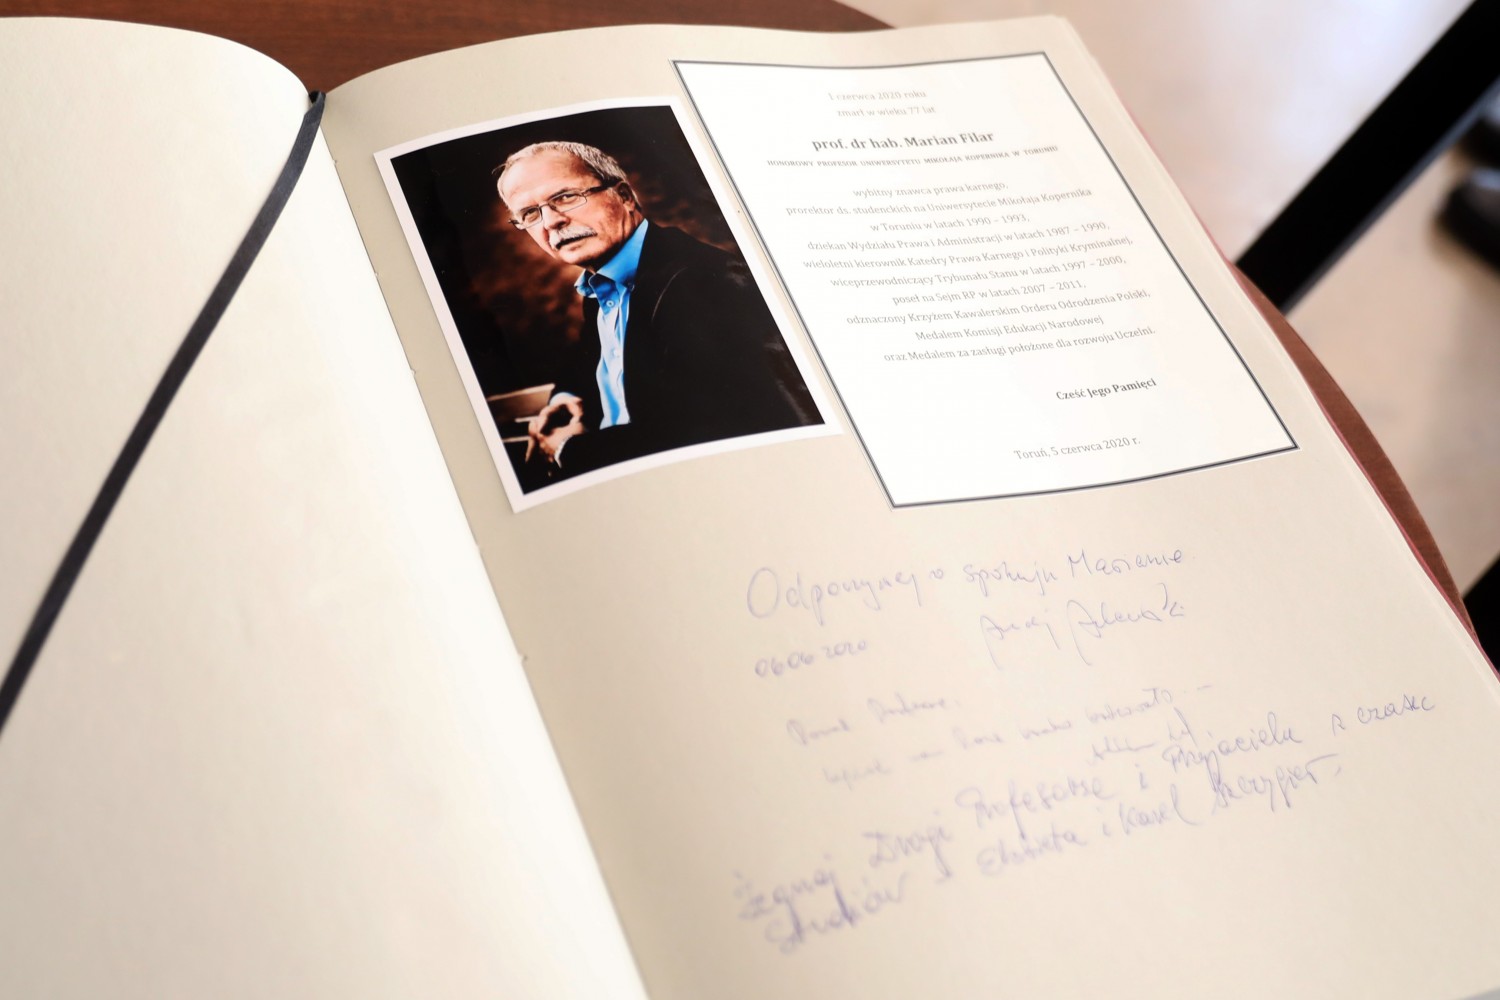 1 czerwca 2020 roku
zmarł w wieku 77 lat
prof. dr hab. Marian Filar
HONOROWY PROFESOR UNIWERSYTETU MIKOŁAJA KOPERNIKA W TORUNIU
wybitny znawca prawa karnego,
prorektor ds. studenckich na Uniwersytecie Mikołaja Kopernika
w Toruniu w latach 1990 – 1993,
dziekan Wydziału Prawa i Administracji w latach 1987 – 1990,
wieloletni kierownik Katedry Prawa Karnego i Polityki Kryminalnej,
wiceprzewodniczący Trybunału Stanu w latach 1997 – 2000,
poseł na Sejm RP w latach 2007 – 2011,
odznaczony Krzyżem Kawalerskim Orderu Odrodzenia Polski,
Medalem Komisji Edukacji Narodowej
oraz Medalem za zasługi położone dla rozwoju Uczelni.
Cześć Jego Pamięci
Toruń, 5 czerwca 2020 r.
Odpoczywaj w spokoju Marianie
06 06 2020
Żegnaj Drogi Profesorze i Przyjacielu z czasów
Studiów - Elżbieta i Karol